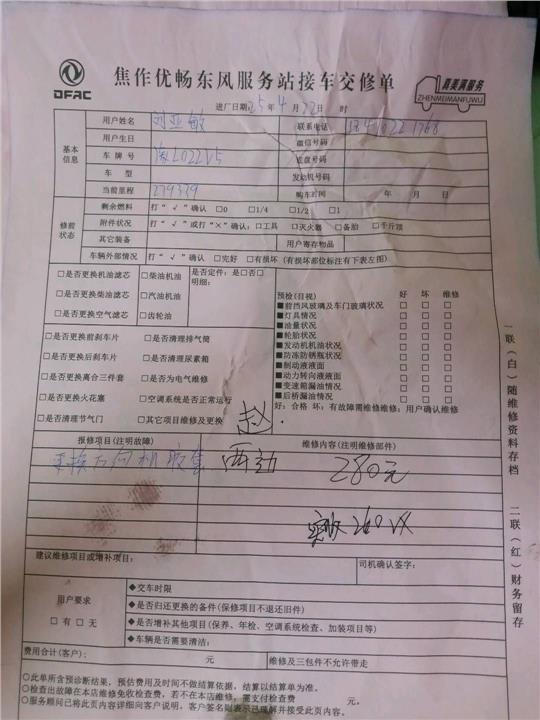 DFAC
焦作优畅东风服务站接车交修单
真美满服务
ZHENMEIMANFUWU
进厂日期25年4月22日 时
基本信息
用户姓名 刘亚敏 联系电话
用户生日 微信号码
车牌号 底盘号码
车型 发动机号码
当前里程 279339 购车时间 年 月 日
修前状态
剩余燃料 打“√”确认 □0 □1/4 □1/2 □1
附件状况 打“√”或打“×”确认:□工具 □灭火器 □备胎 □千斤顶
其它装备 用户寄存物品
车辆外部情况 打“√”确认 □完好 □有损坏 (有损坏部位标注有下表左图)
□是否更换机油滤芯 □柴油机油 是否定件:是□否□
明细:
□是否更换柴油滤芯 □汽油机油
□是否更换空气滤芯 □齿轮油
□是否更换前刹车片 □是否清理排气筒
□是否更换后刹车片 □是否清理尿素箱
□是否更换离合三件套 □是否为电气维修
□是否更换火花塞 □空调系统是否正常运行
□是否清理节气门 □其它项目维修及更换
赵
预检(目视) 好 坏 维修
■前挡风玻璃及车门玻璃状况 □ □ □
■灯具情况 □ □ □
■油量状况 □ □ □
■轮胎状况 □ □ □
■发动机机油状况 □ □ □
■防冻防锈瓶状况 □ □ □
■制动液液面 □ □ □
■动力转向液液面 □ □ □
■变速箱漏油情况 □ □ □
■后桥漏油情况 □ □ □
好:合格 坏:有故障需维修维修:用户确认维修
报修项目(注明故障) 维修内容(注明维修部件)
更换方向机胶套
280元
实收260
建议维修项目或增补项目: 司机确认签字:
用户要求
□有 □无
◆交车时限
◆是否归还更换的备件(保修项目不退还旧件)
◆是否增补其他项目(保养、年检、空调系统检查、加装项目等)
◆车辆是否需要清洁:
费用合计(客户): 元 维修及三包件不允许带走
○此单所含预诊断结果,预估费用及时间不做结算依据,结算以结算单为准。
○检查出故障在本店维修免收检查费,若不在本店维修,需支付检查费
○服务顾问已将此页内容详细向客户说明,客户签名则表示已理解并接受此页内容。
一联(白)随维修资料存档 二联(红)财务留存